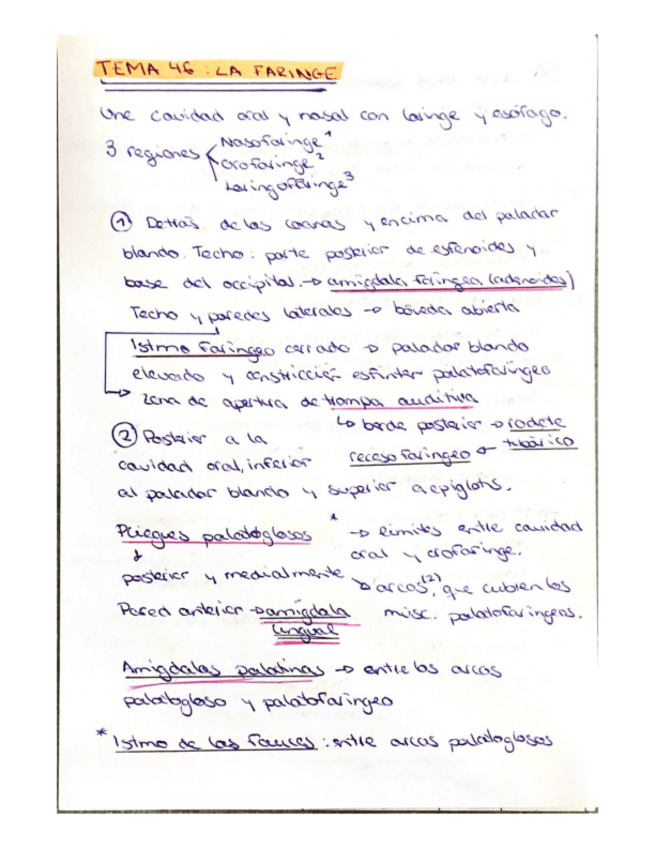 TEMA 46 : LA FARINGE
Une cavidad oral y nasal con laringe y esófago.
3 regiones
Nasofaringe 1
Orofaringe 2
Laringofaringe 3
① Detrás de las coanas y encima del paladar
blando. Techo : parte posterior de esfenoides y
base del occipital. → amígdala faríngea (adenoides)
Techo y paredes laterales → bóveda abierta
Istmo faríngeo cerrado → paladar blando
elevado y constricción esfínter palatofaríngeo
→ zona de apertura de trompa auditiva
↳ borde posterior → rodete
tubárico
receso faríngeo ←
② Posterior a la
cavidad oral, inferior
al paladar blando y superior a epiglotis.
Pliegues palatoglosos * → límites entre cavidad
oral y orofaringe.
↓
posterior y medialmente → arcos (2), que cubren los
músc. palatofaríngeos.
Pared anterior → amígdala
lingual
Amígdalas palatinas → entre los arcos
palatogloso y palatofaríngeo
* Istmo de las fauces : entre arcos palatoglosos